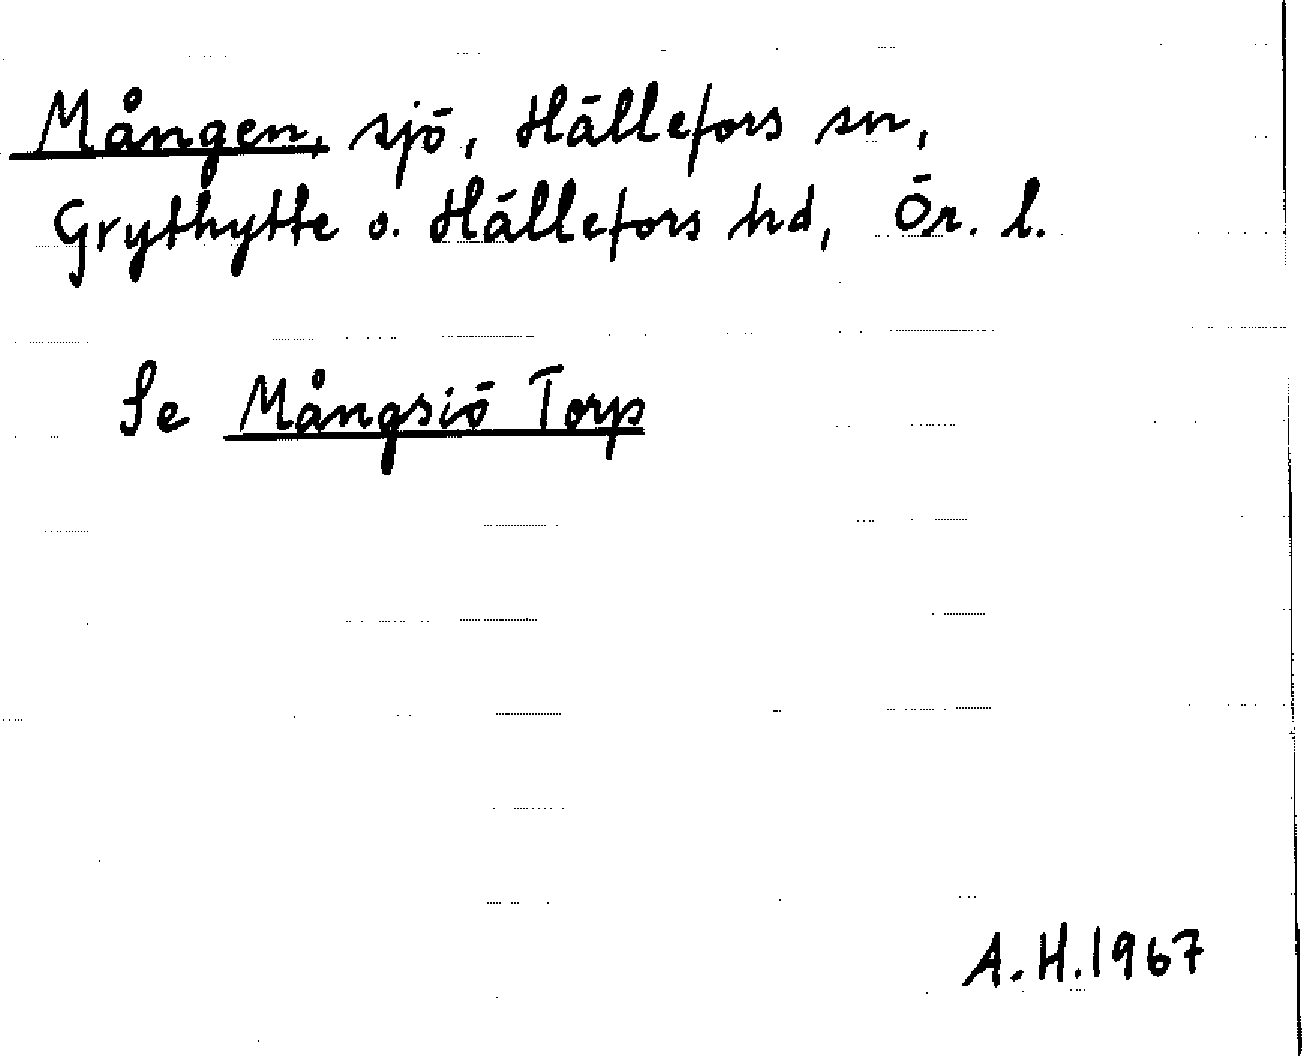 Mången, sjö, Hällefors sn,
Grythytte o. Hällefors hd, Ör. l.
Se Mångsiö Torp
A.H.1967